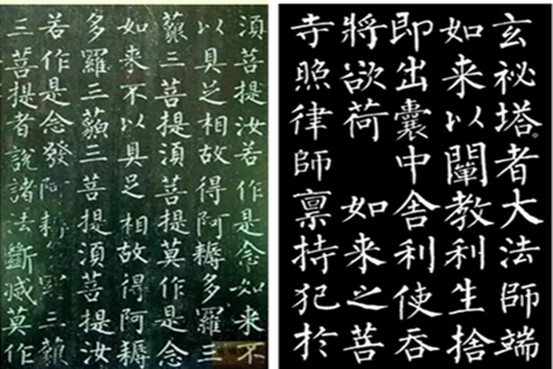 須菩提汝若作是念如来不
以具足相故得阿耨多羅三
藐三菩提須菩提莫作是念
如来不以具足相故得阿耨
多羅三藐三菩提須菩提汝
若作是念發阿耨多羅三藐
三菩提者說諸法斷滅莫作
玄祕塔者大法師端
如来以闡教利生捨
即出囊中舍利使吞
將欲荷 如来之菩
寺照律師禀持犯於